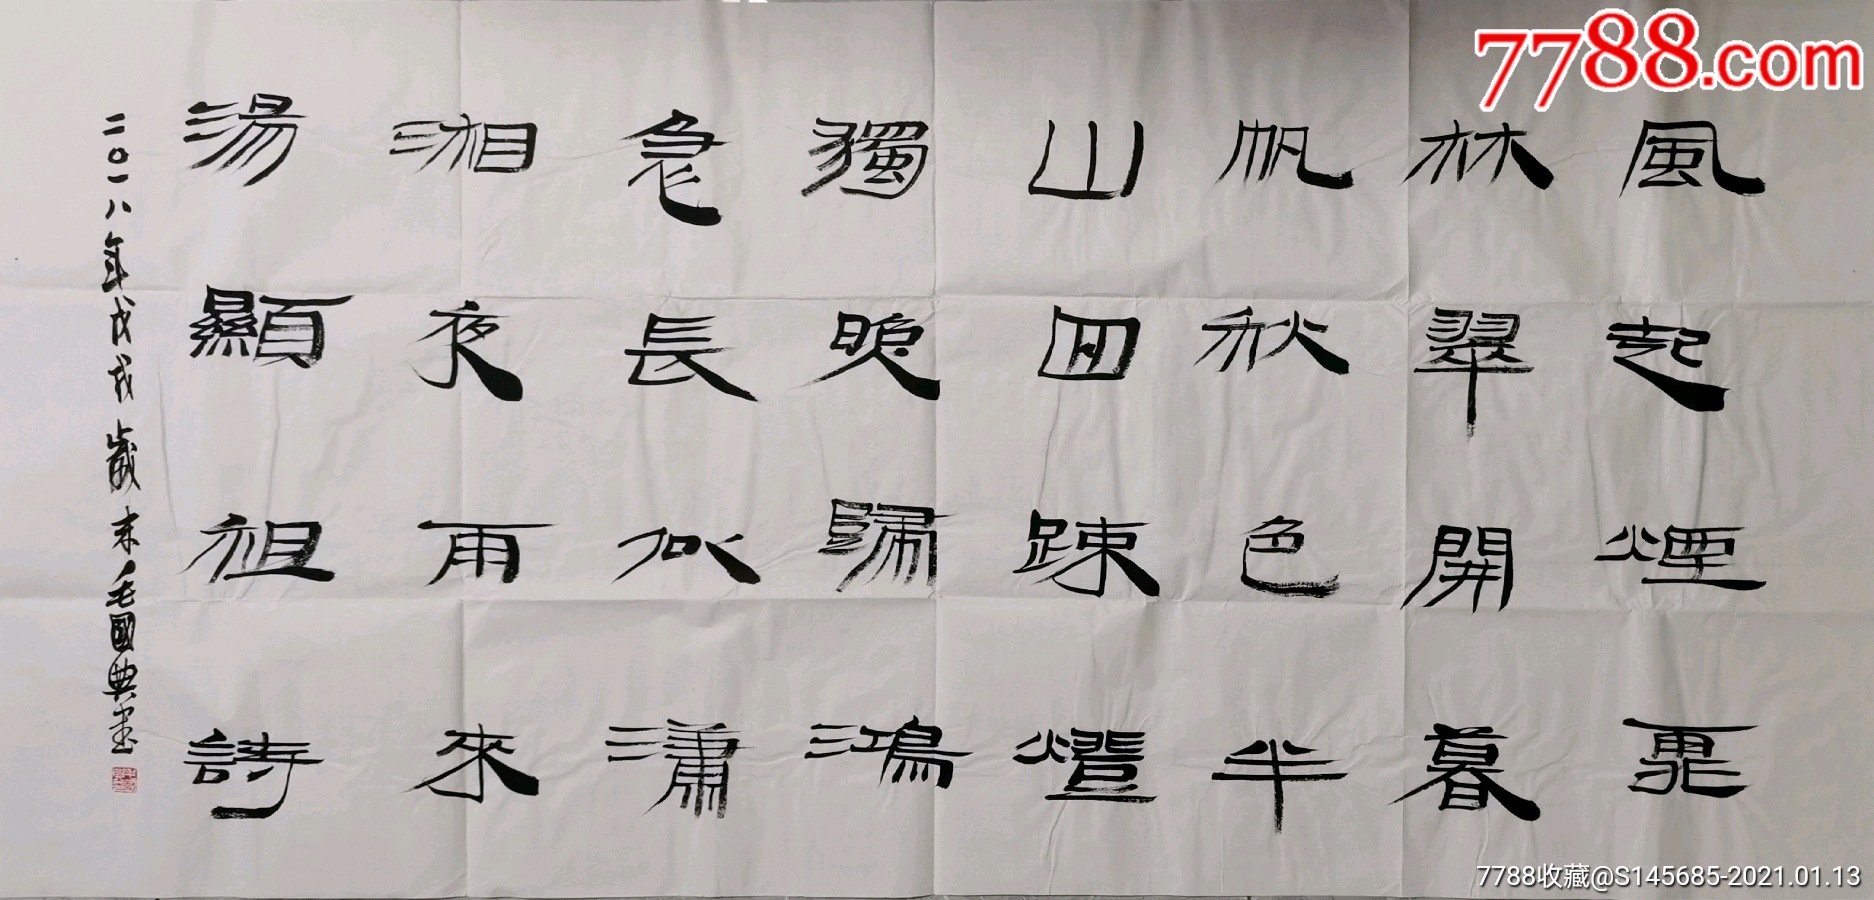 風起煙霏
林翠開暮
帆秋色半
山囬踈燈
獨晚歸鴻
急長似瀟
湘夜雨來
湯顯祖詩
二〇一八年戊戌歲末毛國典書
7788.com
7788收藏@S145685-2021.01.13